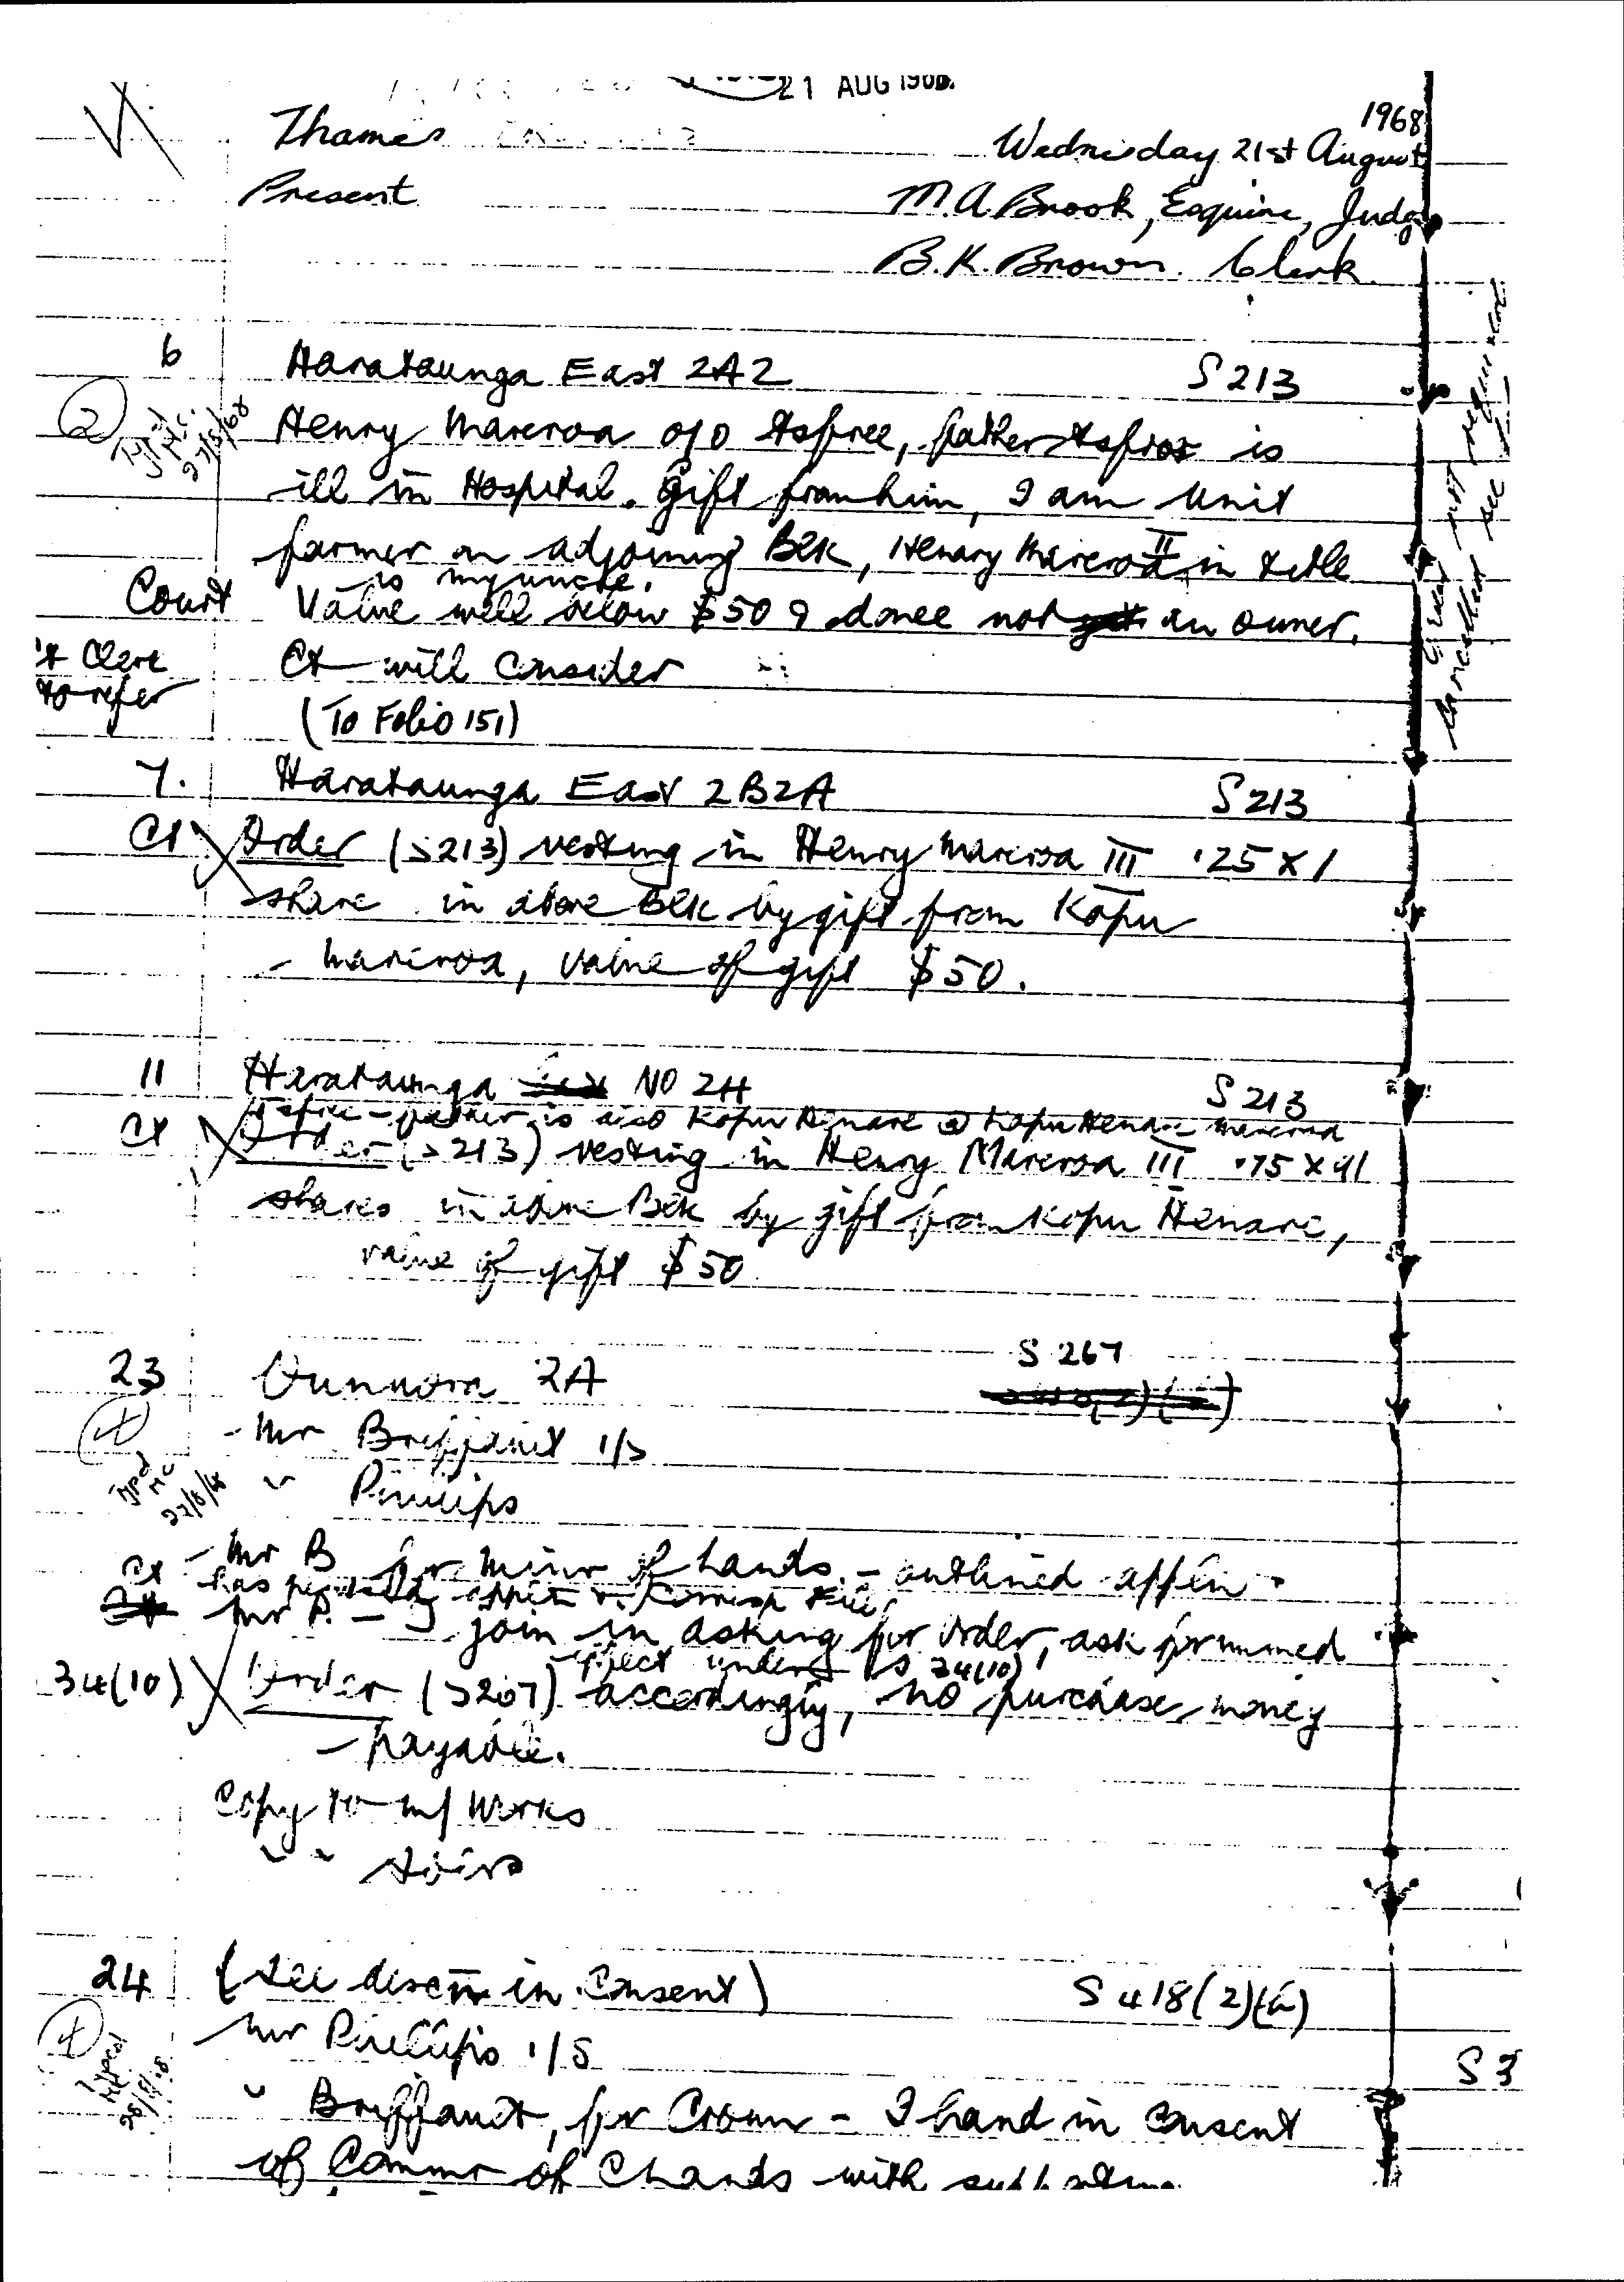 21 AUG 1968
1968
Thames Wednesday 21st August
Present M.A. Brook, Esquire, Judge
B.K. Brown. Clerk.
6 Harataunga East 2A2 S 213
2 Typed 27/8/68
Henry Mareroa o/o father is
ill in Hospital. Gift from him, I am Unit
farmer on adjoining Blk, Henry Mareroa II in title
is my uncle.
Court Value well below $50 & donee not an owner.
Ct Clerk to refer
Ct will consider
(To Folio 151)
7. Harataunga East 2B2A S 213
Ct Order (S213) vesting in Henry Mareroa III .25 x 1
share in above Blk by gift from Kopu
Mareroa, value of gift $50.
11 Harataunga No 2H S 213
father is also Kopu Henare @ Kopu Henare Mareroa
Ct Order (S213) vesting in Henry Mareroa III .75 x 41
shares in above Blk by gift from Kopu Henare,
value of gift $50
23 2A S 267
Typed 27/8/68
Mr Briffault i/s
" Phillips
Ct Mr B for Minr of Lands. - outlined appln.
has
Mr P. - I join in asking for order, ask for immed
effect under S 34(10)
34(10) Order (S267) accordingly, no purchase money
payable.
Copy to M/Works
" " Soirs
24 (See discn in Consent) S 418(2)(a)
Typed
Mr Phillips i/s
S 3
" Briffault, for Crown - I hand in Consent
of Commr of C Lands with